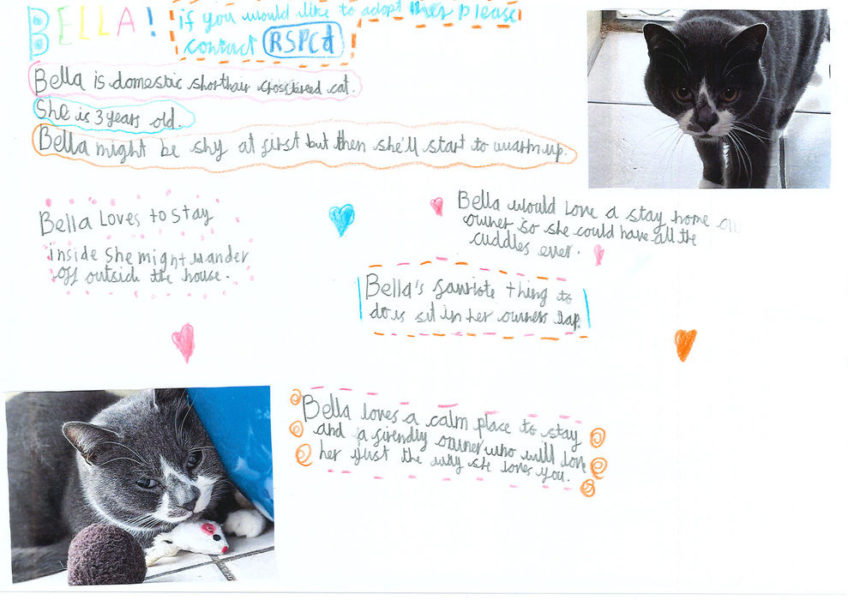 BELLA!
if you would like to adopt her please
contact RSPCA
Bella is domestic shorthair crossbreed cat.
She is 3 years old.
Bella might be shy at first but then she'll start to warm up.
Bella Loves to stay
inside she might wander
off outside the house.
Bella would love a stay home
owner so she could have all the
cuddles ever.
Bella's favriote thing to
do is sit in her owners lap.
Bella loves a calm place to stay
and a firendly owner who will love
her just the way she loves you.